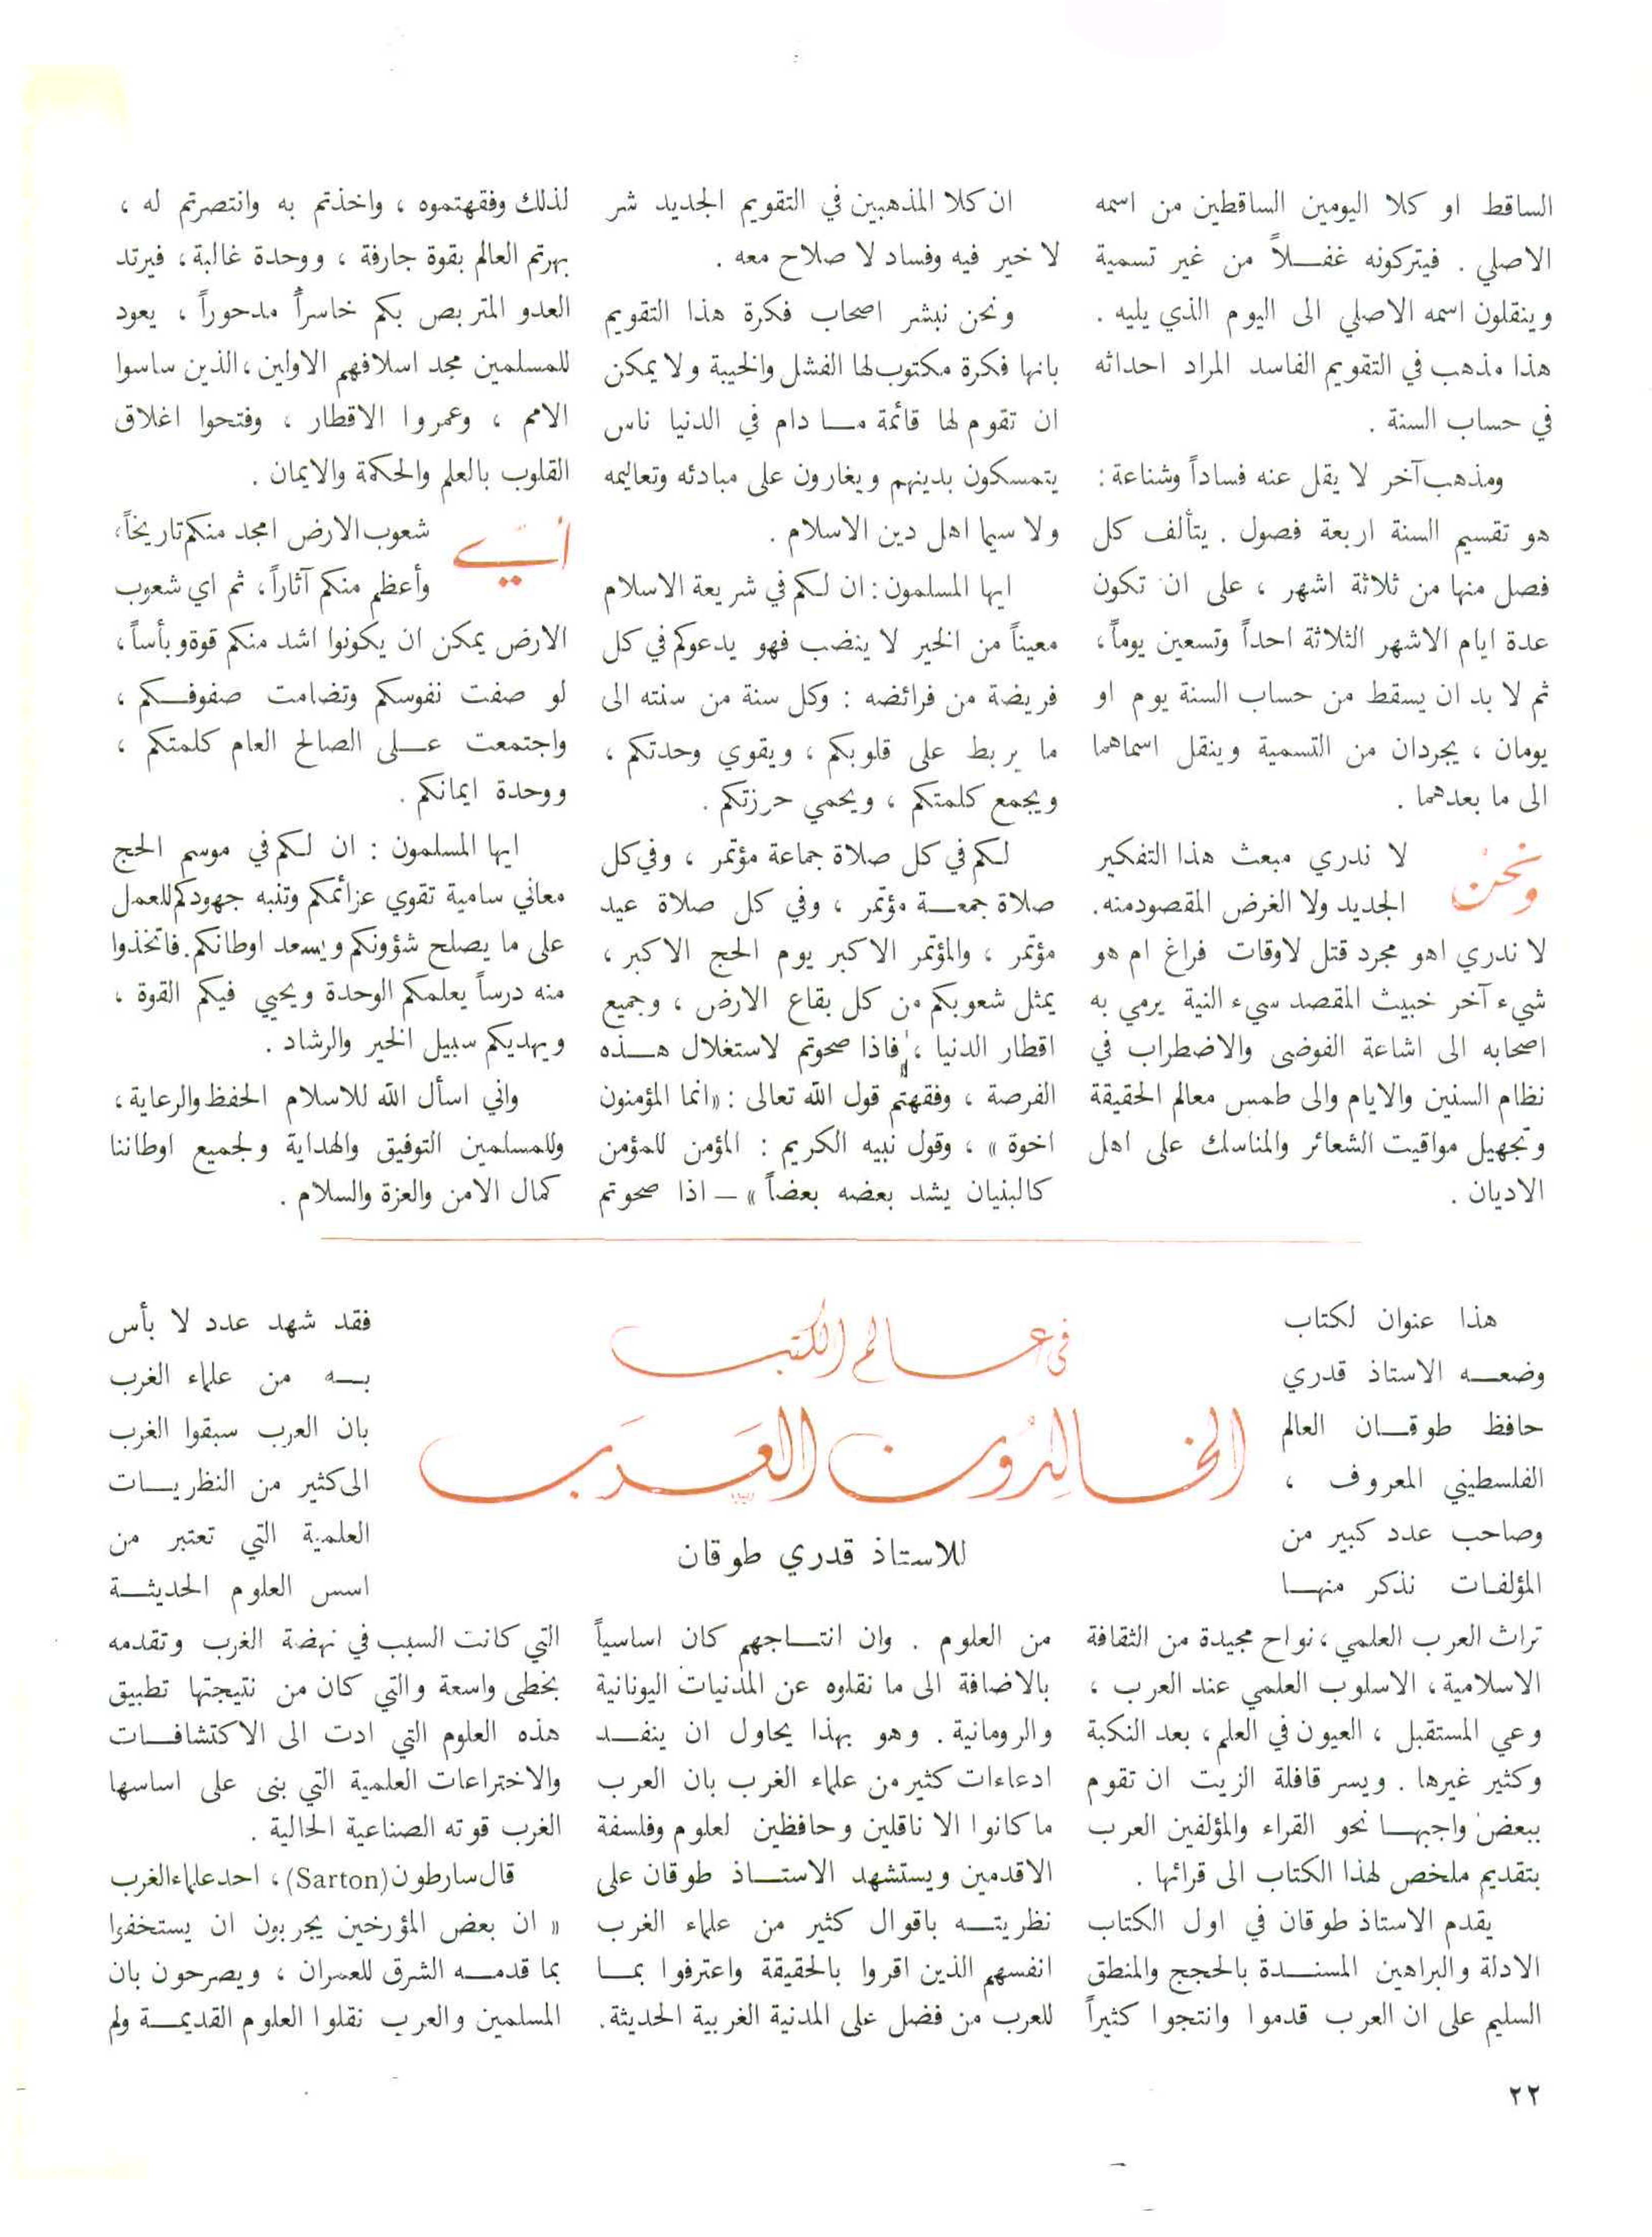 الساقط او كلا اليومين الساقطين من اسمه
الاصلي . فيتركونه غفـــلاً من غير تسمية
وينقلون اسمه الاصلي الى اليوم الذي يليه .
هذا مذهب في التقويم الفاسد المراد احداثه
في حساب السنة .
ومذهب آخر لا يقل عنه فساداً وشناعة :
هو تقسيم السنة اربعة فصول . يتألف كل
فصل منها من ثلاثة اشهر ، على ان تكون
عدة ايام الاشهر الثلاثة احداً وتسعين يوماً ،
ثم لا بد ان يسقط من حساب السنة يوم او
يومان ، يجردان من التسمية وينقل اسماهما
الى ما بعدهما .
ونحن لا ندري مبعث هذا التفكير
الجديد ولا الغرض المقصود منه .
لا ندري اهو مجرد قتل لاوقات فراغ ام هو
شيء آخر خبيث المقصد سيء النية يرمي به
اصحابه الى اشاعة الفوضى والاضطراب في
نظام السنين والايام والى طمس معالم الحقيقة
وتجهيل مواقيت الشعائر والمناسك على اهل
الاديان .
ان كلا المذهبين في التقويم الجديد شر
لا خير فيه وفساد لا صلاح معه .
ونحن نبشر اصحاب فكرة هذا التقويم
بانها فكرة مكتوب لها الفشل والخيبة ولا يمكن
ان تقوم لها قائمة مـــا دام في الدنيا ناس
يتمسكون بدينهم ويغارون على مبادئه وتعاليمه
ولا سيما اهل دين الاسلام .
ايها المسلمون : ان لكم في شريعة الاسلام
معيناً من الخير لا ينضب فهو يدعوكم في كل
فريضة من فرائضه : وكل سنة من سننه الى
ما يربط على قلوبكم ، ويقوي وحدتكم ،
ويجمع كلمتكم ، ويحمي حرزتكم .
لكم في كل صلاة جماعة مؤتمر ، وفي كل
صلاة جمعـــة مؤتمر ، وفي كل صلاة عيد
مؤتمر ، والمؤتمر الاكبر يوم الحج الاكبر ،
يمثل شعوبكم من كل بقاع الارض ، وجميع
اقطار الدنيا ، فاذا صحوتم لاستغلال هـــذه
الفرصة ، وفقهتم قول الله تعالى : «انما المؤمنون
اخوة » ، وقول نبيه الكريم : المؤمن للمؤمن
كالبنيان يشد بعضه بعضاً » — اذا صحوتم
لذلك وفقهتموه ، واخذتم به وانتصرتم له ،
بهرتم العالم بقوة جارفة ، ووحدة غالبة ، فيرتد
العدو المتربص بكم خاسراً مدحوراً ، يعود
للمسلمين مجد اسلافهم الاولين ، الذين ساسوا
الامم ، وعمروا الاقطار ، وفتحوا اغلاق
القلوب بالعلم والحكمة والايمان .
أيّ شعوب الارض امجد منكم تاريخاً ،
وأعظم منكم آثاراً ، ثم اي شعوب
الارض يمكن ان يكونوا اشد منكم قوة وبأساً ،
لو صفت نفوسكم وتضامت صفوفـــكم ،
واجتمعت عـــلى الصالح العام كلمتكم ،
ووحدة ايمانكم .
ايها المسلمون : ان لكم في موسم الحج
معاني سامية تقوي عزائمكم وتنبه جهودكم للعمل
على ما يصلح شؤونكم ويسعد اوطانكم . فاتخذوا
منه درساً يعلمكم الوحدة ويحيي فيكم القوة ،
ويهديكم سبيل الخير والرشاد .
واني اسأل الله للاسلام الحفظ والرعاية ،
وللمسلمين التوفيق والهداية ولجميع اوطاننا
كمال الامن والعزة والسلام .
في عالم الكتب
الخالدون العرب
للاستاذ قدري طوقان
هذا عنوان لكتاب
وضعـــه الاستاذ قدري
حافظ طوقـــان العالم
الفلسطيني المعروف ،
وصاحب عدد كبير من
المؤلفات نذكر منهـــا
تراث العرب العلمي ، نواح مجيدة من الثقافة
الاسلامية ، الاسلوب العلمي عند العرب ،
وعي المستقبل ، العيون في العلم ، بعد النكبة
وكثير غيرها . ويسر قافلة الزيت ان تقوم
ببعض واجبهـــا نحو القراء والمؤلفين العرب
بتقديم ملخص لهذا الكتاب الى قرائها .
يقدم الاستاذ طوقان في اول الكتاب
الادلة والبراهين المسنـــدة بالحجج والمنطق
السليم على ان العرب قدموا وانتجوا كثيراً
من العلوم . وان انتـــاجهم كان اساسياً
بالاضافة الى ما نقلوه عن المدنيات اليونانية
والرومانية . وهو بهذا يحاول ان ينفـــد
ادعاءات كثير من علماء الغرب بان العرب
ما كانوا الا ناقلين وحافظين لعلوم وفلسفة
الاقدمين ويستشهد الاستـــاذ طوقان على
نظريتـــه باقوال كثير من علماء الغرب
انفسهم الذين اقروا بالحقيقة واعترفوا بمـــا
للعرب من فضل على المدنية الغربية الحديثة .
فقد شهد عدد لا بأس
بـــه من علماء الغرب
بان العرب سبقوا الغرب
الى كثير من النظريـــات
العلمية التي تعتبر من
اسس العلوم الحديثـــة
التي كانت السبب في نهضة الغرب وتقدمه
بخطى واسعة والتي كان من نتيجتها تطبيق
هذه العلوم التي ادت الى الاكتشافـــات
والاختراعات العلمية التي بنى على اساسها
الغرب قوته الصناعية الحالية .
قال سارطون (Sarton) ، احد علماء الغرب
« ان بعض المؤرخين يجربون ان يستخفوا
بما قدمـــه الشرق للعمران ، ويصرحون بان
المسلمين والعرب نقلوا العلوم القديمـــة ولم
٢٢